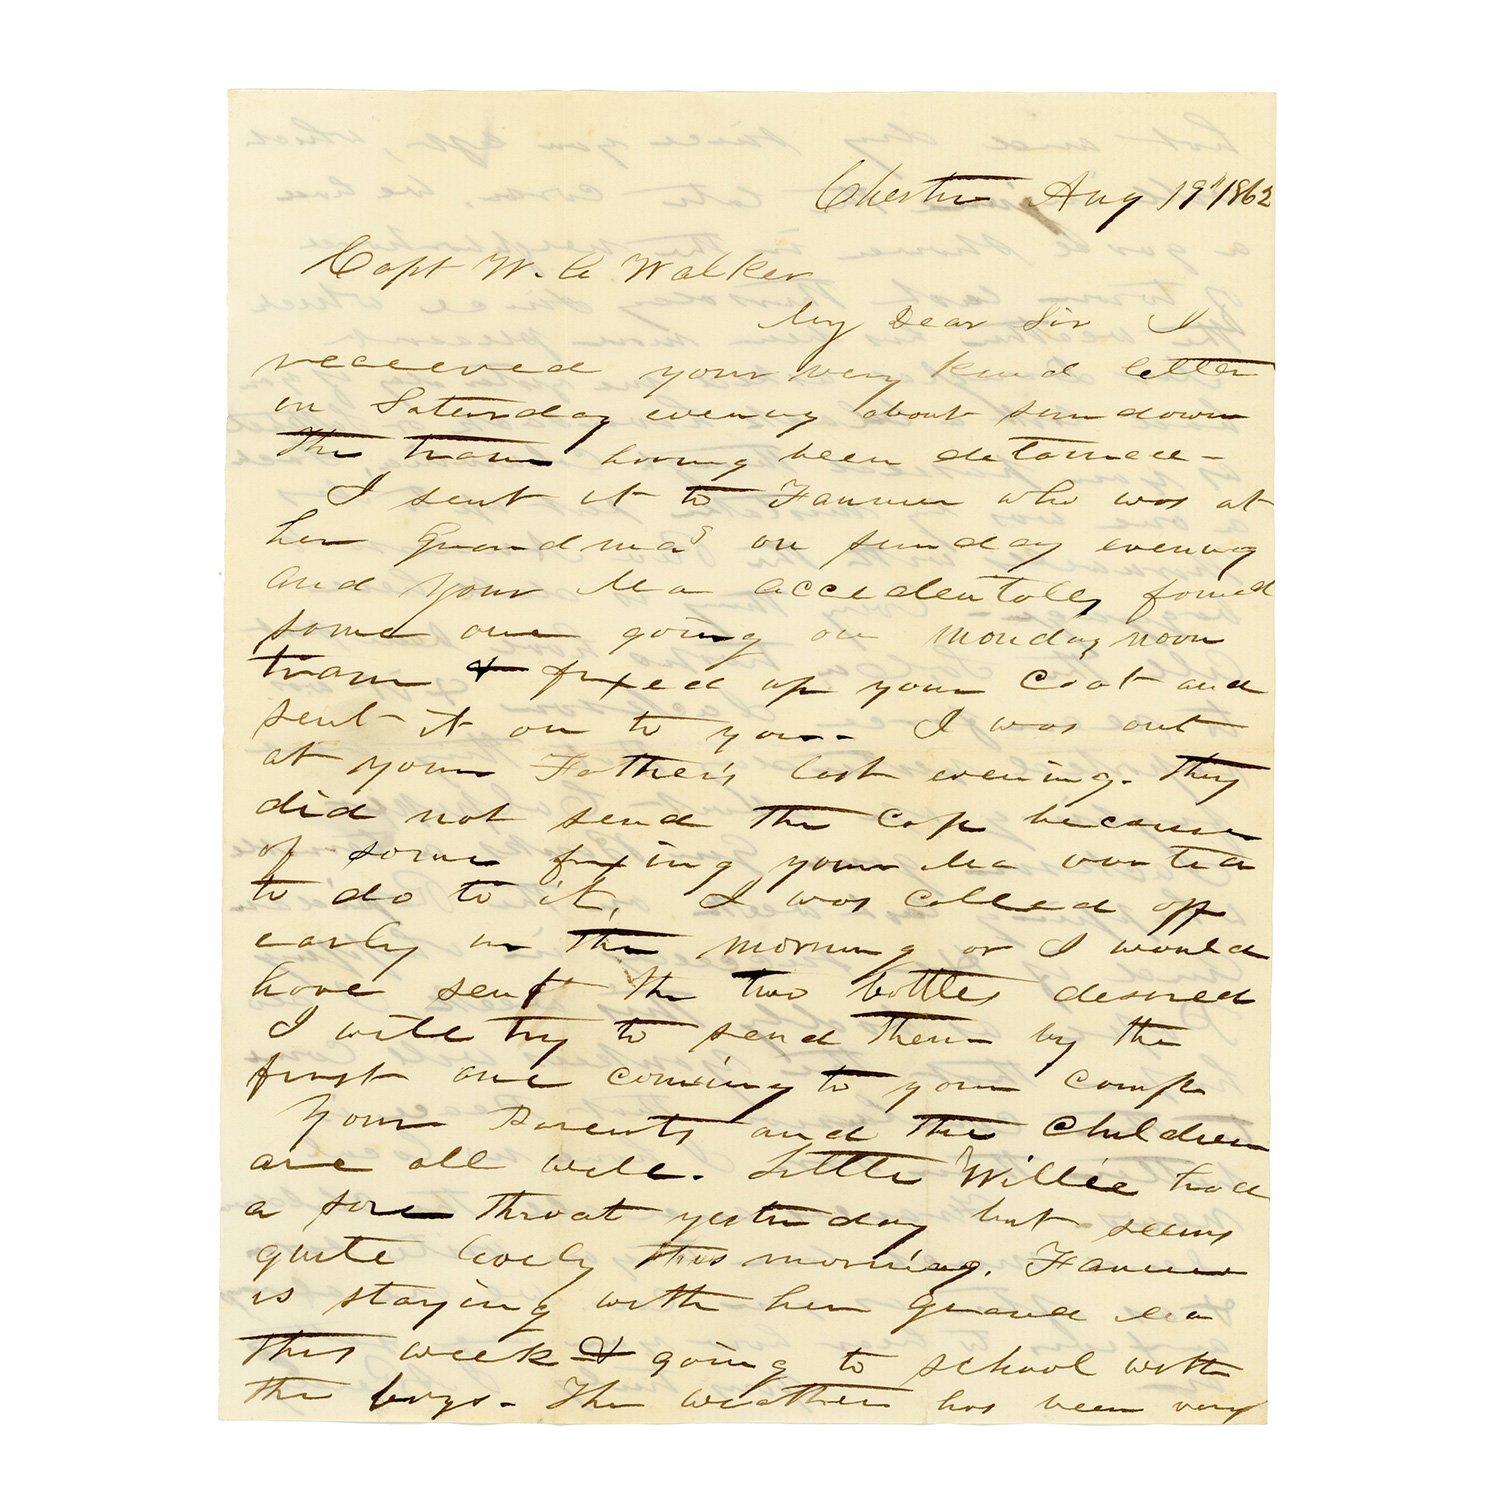 Chester Aug 19" 1862
Capt W. A Walker
My Dear Sir I
received your very kind letter
on Saturday evening about sun down
the train having been detained -
I sent it to Fannie who was at
her Grandma's on sunday evening
and Your Ma accedentally found
some one going on monday noon
train & fixed up your Coat and
sent it on to you - I was out
at your Father's last evening. They
did not send the Cap because
of some fixing your Ma wanted
to do to it, I was Called off
early in the morning or I would
have sent the two bottles desired
I will try to send them by the
first one coming to your camp
Your Parents and the Children
are all well. Little Willie had
a sore throat yesterday but seems
quite lively this morning. Fannie
is staying with her Grand Ma
this week & going to school with
the boys - The weather has been very